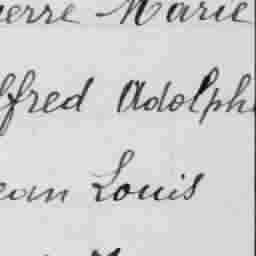 ierre Marie
lfred Adolph
ean Louis